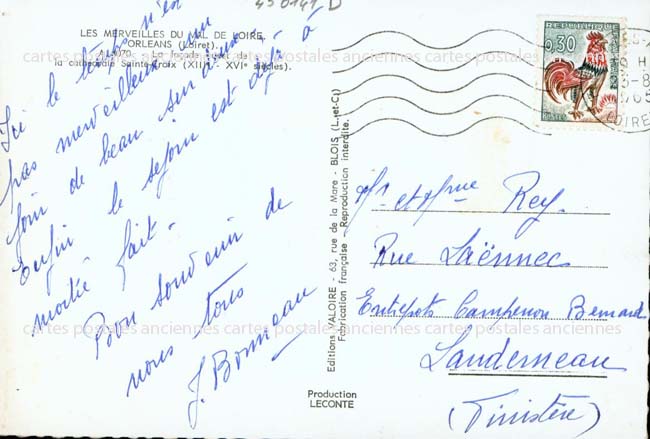 450141 D
LES MERVEILLES DU VAL DE LOIRE
ORLEANS (Loiret).
La façade de
la cathédrale Sainte-Croix (XIIIe - XVIe siècles).
Ici le temps n'est
pas merveilleux un
jour de beau sur deux
Enfin le séjour est déjà à
moitié fait.
Bon souvenir de
nous tous
J. Bonneau
Editions VALOIRE - 63, rue de la Mare - BLOIS (L.-et-C.)
Fabrication française - Reproduction interdite.
Production
LECONTE
REPUBLIQUE FRANÇAISE
0,30
POSTES
1965
LOIRET
Mr et Mme Rey.
Rue Laënnec
Entrepots Campenon Bernard
Landerneau
(Finistère)
cartes postales anciennes cartes postales anciennes cartes postales anciennes